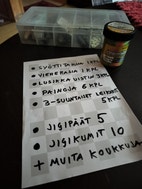 • SYÖTTITAHNA 1 KPL
• VIEHERASIA 1 KPL
• LUSIKKA UISTIN 3KPL
• PAINOJA 6 KPL
• 3-SUUNTAISET LEIKARIT 5KPL
• JIGIPÄÄT 5
• JIGIKUMIT 10
+ MUITA KOUKKUJA